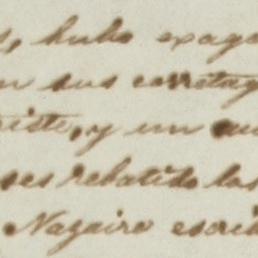 s, hubo exage
n sus corretag
riste, y un
ses rebatido las
Nazaire escri